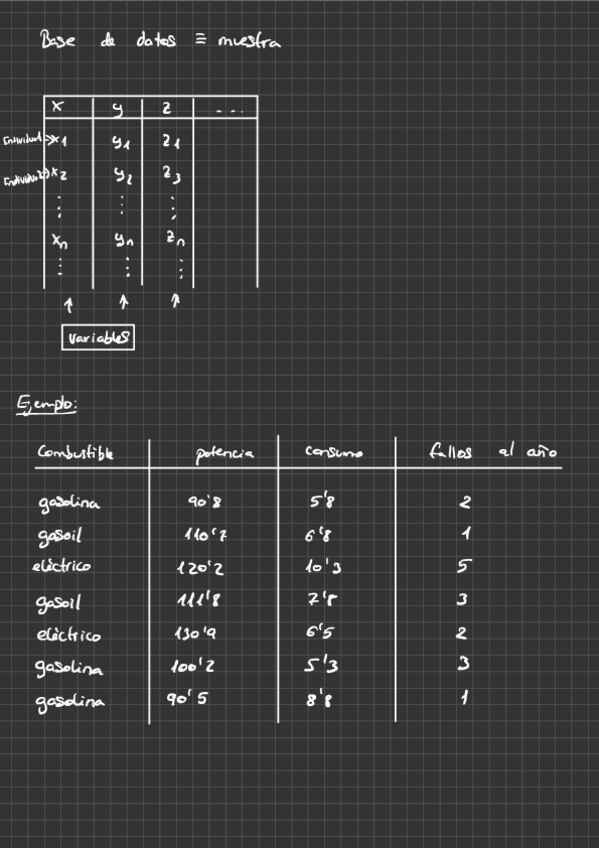 Base de datos ≡ muestra
x y z ...
Individuo1 → x1 y1 z1
Individuo2 → x2 y2 z3
⋮ ⋮ ⋮
xn yn zn
⋮ ⋮ ⋮
↑ ↑ ↑
variables
Ejemplo:
Combustible potencia consumo fallos al año
gasolina 90'8 5'8 2
gasoil 110'7 6'8 1
eléctrico 120'2 10'3 5
gasoil 111'8 7'8 3
eléctrico 130'9 6'5 2
gasolina 100'2 5'3 3
gasolina 90'5 8'8 1